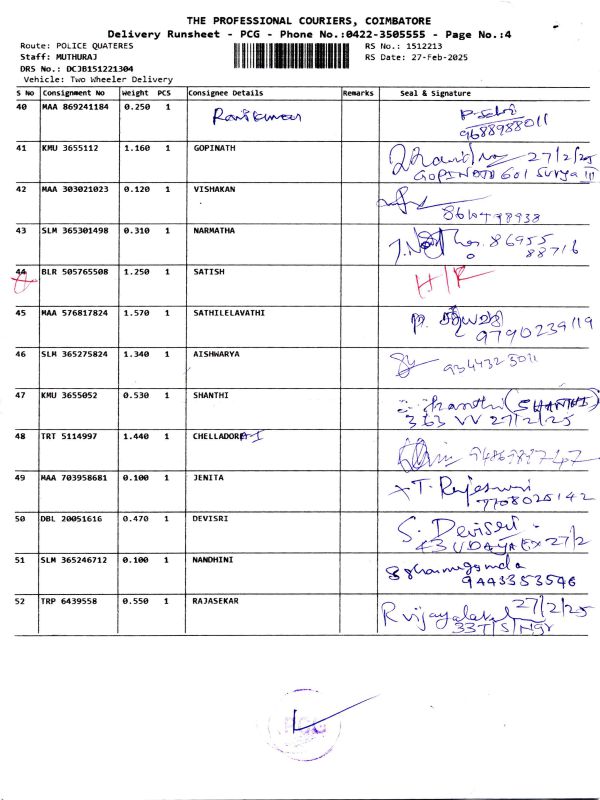 THE PROFESSIONAL COURIERS, COIMBATORE
Delivery Runsheet - PCG - Phone No.:0422-3505555 - Page No.:4
Route: POLICE QUATERES RS No.: 1512213
Staff: MUTHURAJ RS Date: 27-Feb-2025
DRS No.: DCJB151221304
Vehicle: Two Wheeler Delivery
S No Consignment No Weight PCS Consignee Details Remarks Seal & Signature
40 MAA 869241184 0.250 1 Ravikumar
9688988011
41 KMU 3655112 1.160 1 GOPINATH 27/2/25
GOPINATH 601 Surya III
42 MAA 303021023 0.120 1 VISHAKAN
43 SLM 365301498 0.310 1 NARMATHA 86955
88716
44 BLR 505765508 1.250 1 SATISH H/R
45 MAA 576817824 1.570 1 SATHILELAVATHI
9790239119
46 SLM 365275824 1.340 1 AISHWARYA 9344323011
47 KMU 3655052 0.530 1 SHANTHI Shanthi (SHANTHI)
363 VV 27/2/25
48 TRT 5114997 1.440 1 CHELLADORAI
49 MAA 703958681 0.100 1 JENITA T. Rajeswari
7708025142
50 DBL 20051616 0.470 1 DEVISRI S. Devisri
43 UDAYA EX 27/2
51 SLM 365246712 0.100 1 NANDHINI
9443353546
52 TRP 6439558 0.550 1 RAJASEKAR R vijayalaxmi 27/2/25
33 T/S/Ngr
PCG